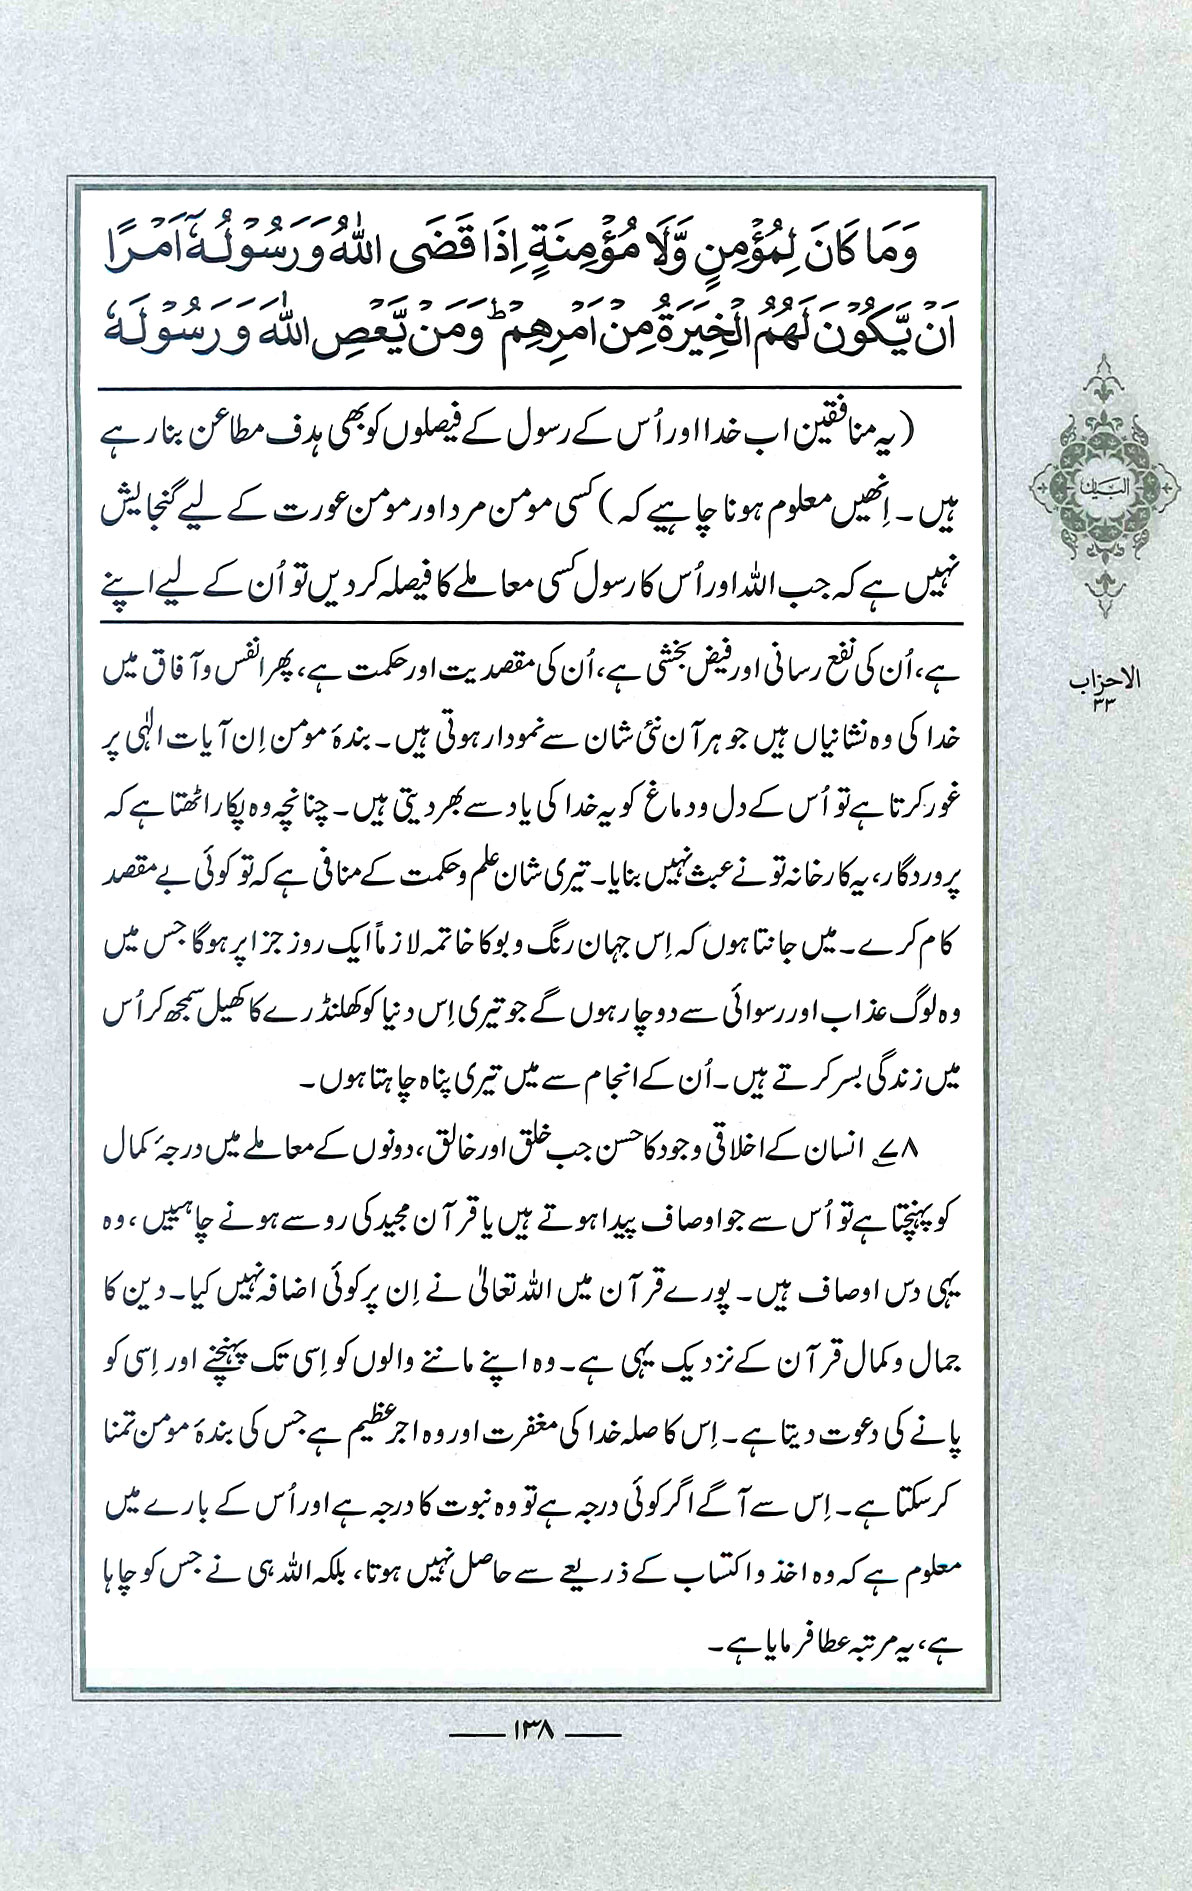 وَمَا كَانَ لِمُؤْمِنٍ وَّلَا مُؤْمِنَةٍ اِذَا قَضَى اللّٰهُ وَرَسُوْلُهٗٓ اَمْرًا
اَنْ يَّكُوْنَ لَهُمُ الْخِيَرَةُ مِنْ اَمْرِهِمْ ؕ وَمَنْ يَّعْصِ اللّٰهَ وَرَسُوْلَهٗ
(یہ منافقین اب خدا اور اُس کے رسول کے فیصلوں کو بھی ہدف مطاعن بنا رہے
ہیں۔ اِنھیں معلوم ہونا چاہیے کہ) کسی مومن مرد اور مومن عورت کے لیے گنجایش
نہیں ہے کہ جب اللہ اور اُس کا رسول کسی معاملے کا فیصلہ کر دیں تو اُن کے لیے اپنے
ہے، اُن کی نفع رسانی اور فیض بخشی ہے، اُن کی مقصدیت اور حکمت ہے، پھر انفس و آفاق میں
خدا کی وہ نشانیاں ہیں جو ہر آن نئی شان سے نمودار ہوتی ہیں۔ بندۂ مومن اِن آیات الٰہی پر
غور کرتا ہے تو اُس کے دل و دماغ کو یہ خدا کی یاد سے بھر دیتی ہیں۔ چنانچہ وہ پکار اٹھتا ہے کہ
پروردگار، یہ کارخانہ تو نے عبث نہیں بنایا۔ تیری شان علم و حکمت کے منافی ہے کہ تو کوئی بے مقصد
کام کرے۔ میں جانتا ہوں کہ اِس جہان رنگ و بو کا خاتمہ لازماً ایک روز جزا پر ہوگا جس میں
وہ لوگ عذاب اور رسوائی سے دوچار ہوں گے جو تیری اِس دنیا کو کھلنڈرے کا کھیل سمجھ کر اُس
میں زندگی بسر کرتے ہیں۔ اُن کے انجام سے میں تیری پناہ چاہتا ہوں۔
۷۸؎ انسان کے اخلاقی وجود کا حسن جب خلق اور خالق، دونوں کے معاملے میں درجۂ کمال
کو پہنچتا ہے تو اُس سے جو اوصاف پیدا ہوتے ہیں یا قرآن مجید کی رو سے ہونے چاہییں، وہ
یہی دس اوصاف ہیں۔ پورے قرآن میں اللہ تعالیٰ نے اِن پر کوئی اضافہ نہیں کیا۔ دین کا
جمال و کمال قرآن کے نزدیک یہی ہے۔ وہ اپنے ماننے والوں کو اِسی تک پہنچنے اور اِسی کو
پانے کی دعوت دیتا ہے۔ اِس کا صلہ خدا کی مغفرت اور وہ اجر عظیم ہے جس کی بندۂ مومن تمنا
کر سکتا ہے۔ اِس سے آگے اگر کوئی درجہ ہے تو وہ نبوت کا درجہ ہے اور اُس کے بارے میں
معلوم ہے کہ وہ اخذ و اکتساب کے ذریعے سے حاصل نہیں ہوتا، بلکہ اللہ ہی نے جس کو چاہا
ہے، یہ مرتبہ عطا فرمایا ہے۔
البیان
الاحزاب
۳۳
۱۳۸